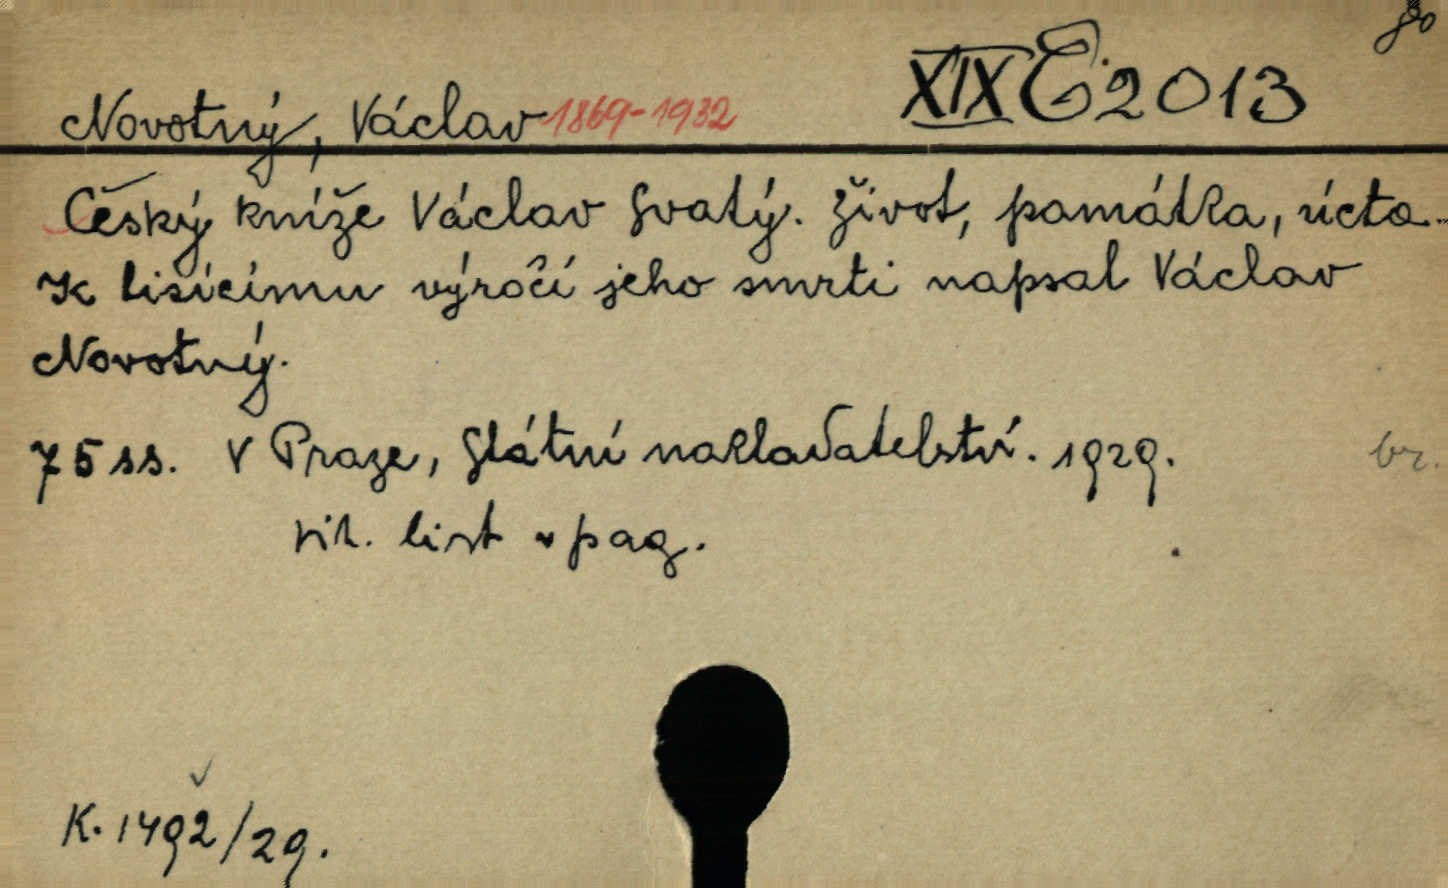 8o
XIX E 2013
Novotný, Václav 1869-1932
Český kníže Václav Svatý. Život, památka, úcta.
K tisícímu výročí jeho smrti napsal Václav
Novotný.
75 ss. V Praze, Státní nakladatelství. 1929.
br.
tit. list v pag.
K. 1492/29.